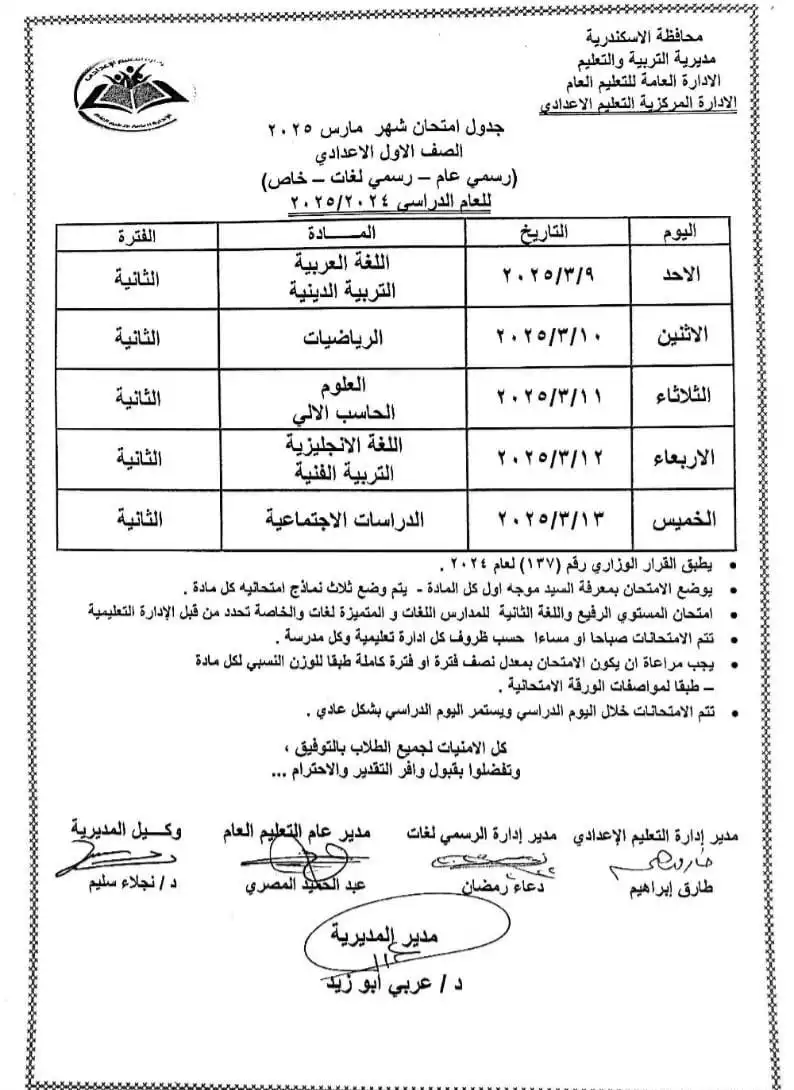 محافظة الاسكندرية
مديرية التربية والتعليم
الادارة العامة للتعليم العام
الادارة المركزية التعليم الاعدادي
جدول امتحان شهر مارس ٢٠٢٥
الصف الاول الاعدادي
(رسمي عام – رسمي لغات – خاص)
للعام الدراسي ٢٠٢٥/٢٠٢٤
اليوم التاريخ المـــادة الفترة
الاحد ٢٠٢٥/٣/٩ اللغة العربية التربية الدينية الثانية
الاثنين ٢٠٢٥/٣/١٠ الرياضيات الثانية
الثلاثاء ٢٠٢٥/٣/١١ العلوم الحاسب الالي الثانية
الاربعاء ٢٠٢٥/٣/١٢ اللغة الانجليزية التربية الفنية الثانية
الخميس ٢٠٢٥/٣/١٣ الدراسات الاجتماعية الثانية
• يطبق القرار الوزاري رقم (١٣٧) لعام ٢٠٢٤ .
• يوضع الامتحان بمعرفة السيد موجه اول كل المادة - يتم وضع ثلاث نماذج امتحانيه كل مادة .
• امتحان المستوي الرفيع واللغة الثانية للمدارس اللغات و المتميزة لغات والخاصة تحدد من قبل الإدارة التعليمية
• تتم الامتحانات صباحا او مساءا حسب ظروف كل ادارة تعليمية وكل مدرسة .
• يجب مراعاة ان يكون الامتحان بمعدل نصف فترة او فترة كاملة طبقا للوزن النسبي لكل مادة
– طبقا لمواصفات الورقة الامتحانية .
• تتم الامتحانات خلال اليوم الدراسي ويستمر اليوم الدراسي بشكل عادي .
كل الامنيات لجميع الطلاب بالتوفيق ،
وتفضلوا بقبول وافر التقدير والاحترام ...
مدير إدارة التعليم الإعدادي مدير إدارة الرسمي لغات مدير عام التعليم العام وكـــيل المديرية
طارق إبراهيم دعاء رمضان عبد الحميد المصري د / نجلاء سليم
مدير المديرية
د / عربي أبو زيد